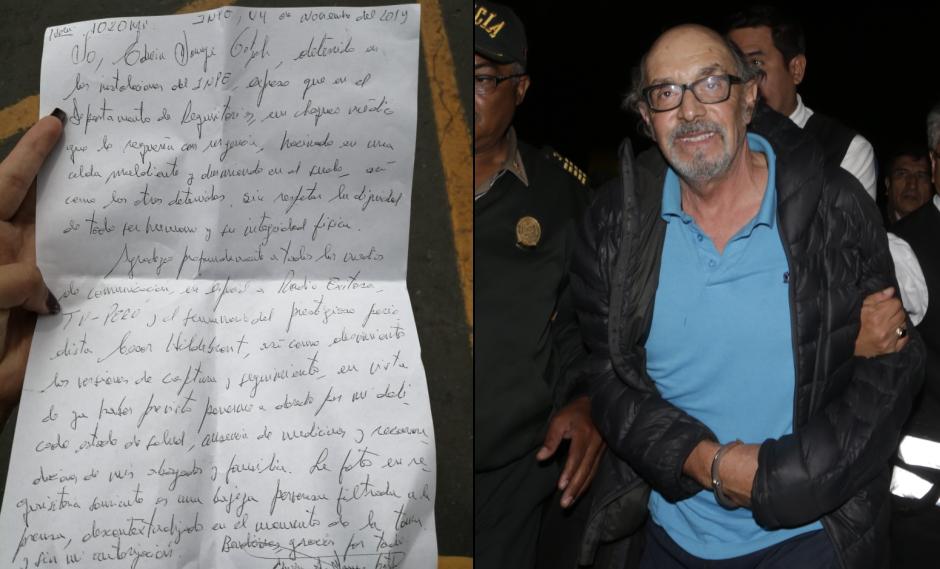 10:20 m. INPE, 04 de Noviembre del 2019
Yo, Edwin Donayre Gotzch, detenido en
las instalaciones del INPE, expreso que en el
Departamento de Requisitorias, un chequeo médico
que lo requería con urgencia, hacinado en una
celda maloliente y durmiendo en el suelo, así
como los otros detenidos. Sin respetar la dignidad
de todo ser humano y su integridad física.
Agradezco profundamente a todos los medios
de comunicación, en especial a Radio Exitosa
TV-PERÚ y al semanario del prestigioso perio
dista Cesar Hildebrant, así como desmiento
las versiones de captura y seguimiento, en vista
de ya haber previsto ponerme a derecho por mi deli
cado estado de salud, ausencia de medicinas y recomen
daciones de mis abogados y familia. La foto en re
quisitoria durmiendo es una bajeza perversa filtrada a la
prensa, descontextualizada en el momento de la toma
y sin mi autorización. gracias por todo
ICIA